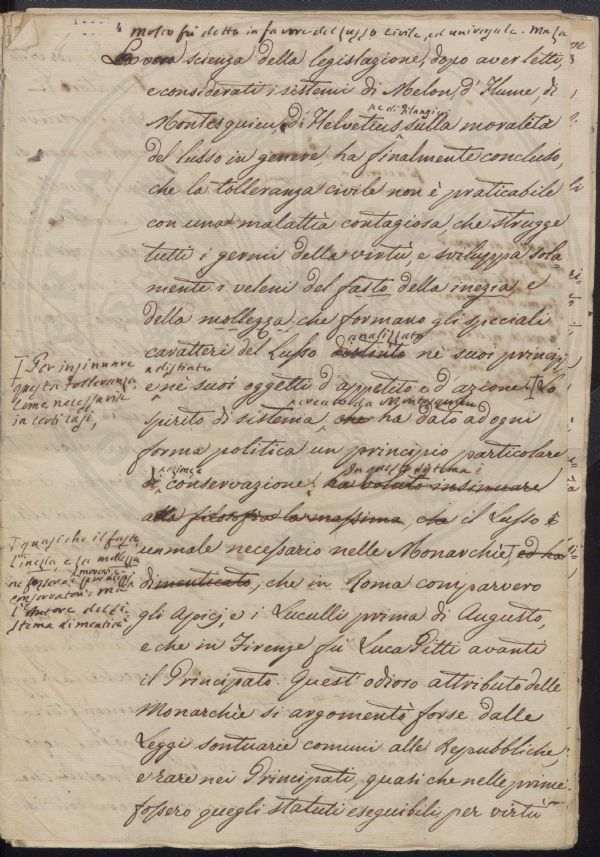 Molto fu detto in favore del lusso civile, ed universale. Ma la
La vera scienza della legislazione, dopo aver letti,
e considerati i sistemi di Melon, d'Hume, di
ne di Filangieri
Montesquieu, di Helvetius, sulla moralità
del lusso in genere, ha finalmente concluso,
che la tolleranza civile non è praticabile
con una malattia contagiosa, che strugge
tutti i germi della virtù, e sviluppa sola
mente i veleni del fasto della inezia, e
della mollezza, che formano gli speciali
analizzato
caratteri del Lusso distinto nè suoi principj
e distinto
e nè suoi oggetti d'appetito e d'azione. Lo
creato da Montesquieu
spirito di sistema, che ha dato ad ogni
forma politica un principio particolare
In questo sistema è
di conservazione, ha voluto insinuare
alla filosofia la massima, che il Lusso è
un male necessario nelle Monarchie, ed ha
dimenticato, che in Roma comparvero
gli Apicj, e i Luculli prima di Augusto,
e che in Firenze fu Luca Pitti avanti
il Principato. Quest'odioso attributo delle
Monarchie si argomentò forse dalle
Leggi sontuarie comuni alle Repubbliche,
e rare nei Principati, quasi che nelle prime
fossero quegli statuti eseguibili per virtù
Per insinuare
questa tolleranza
come necessaria
in certi casi,
quasi che il fasto,
l'inezia, e la mollezza
ne fossero i principj
conservatori: ma
l'Autore del si
stema dimenticò